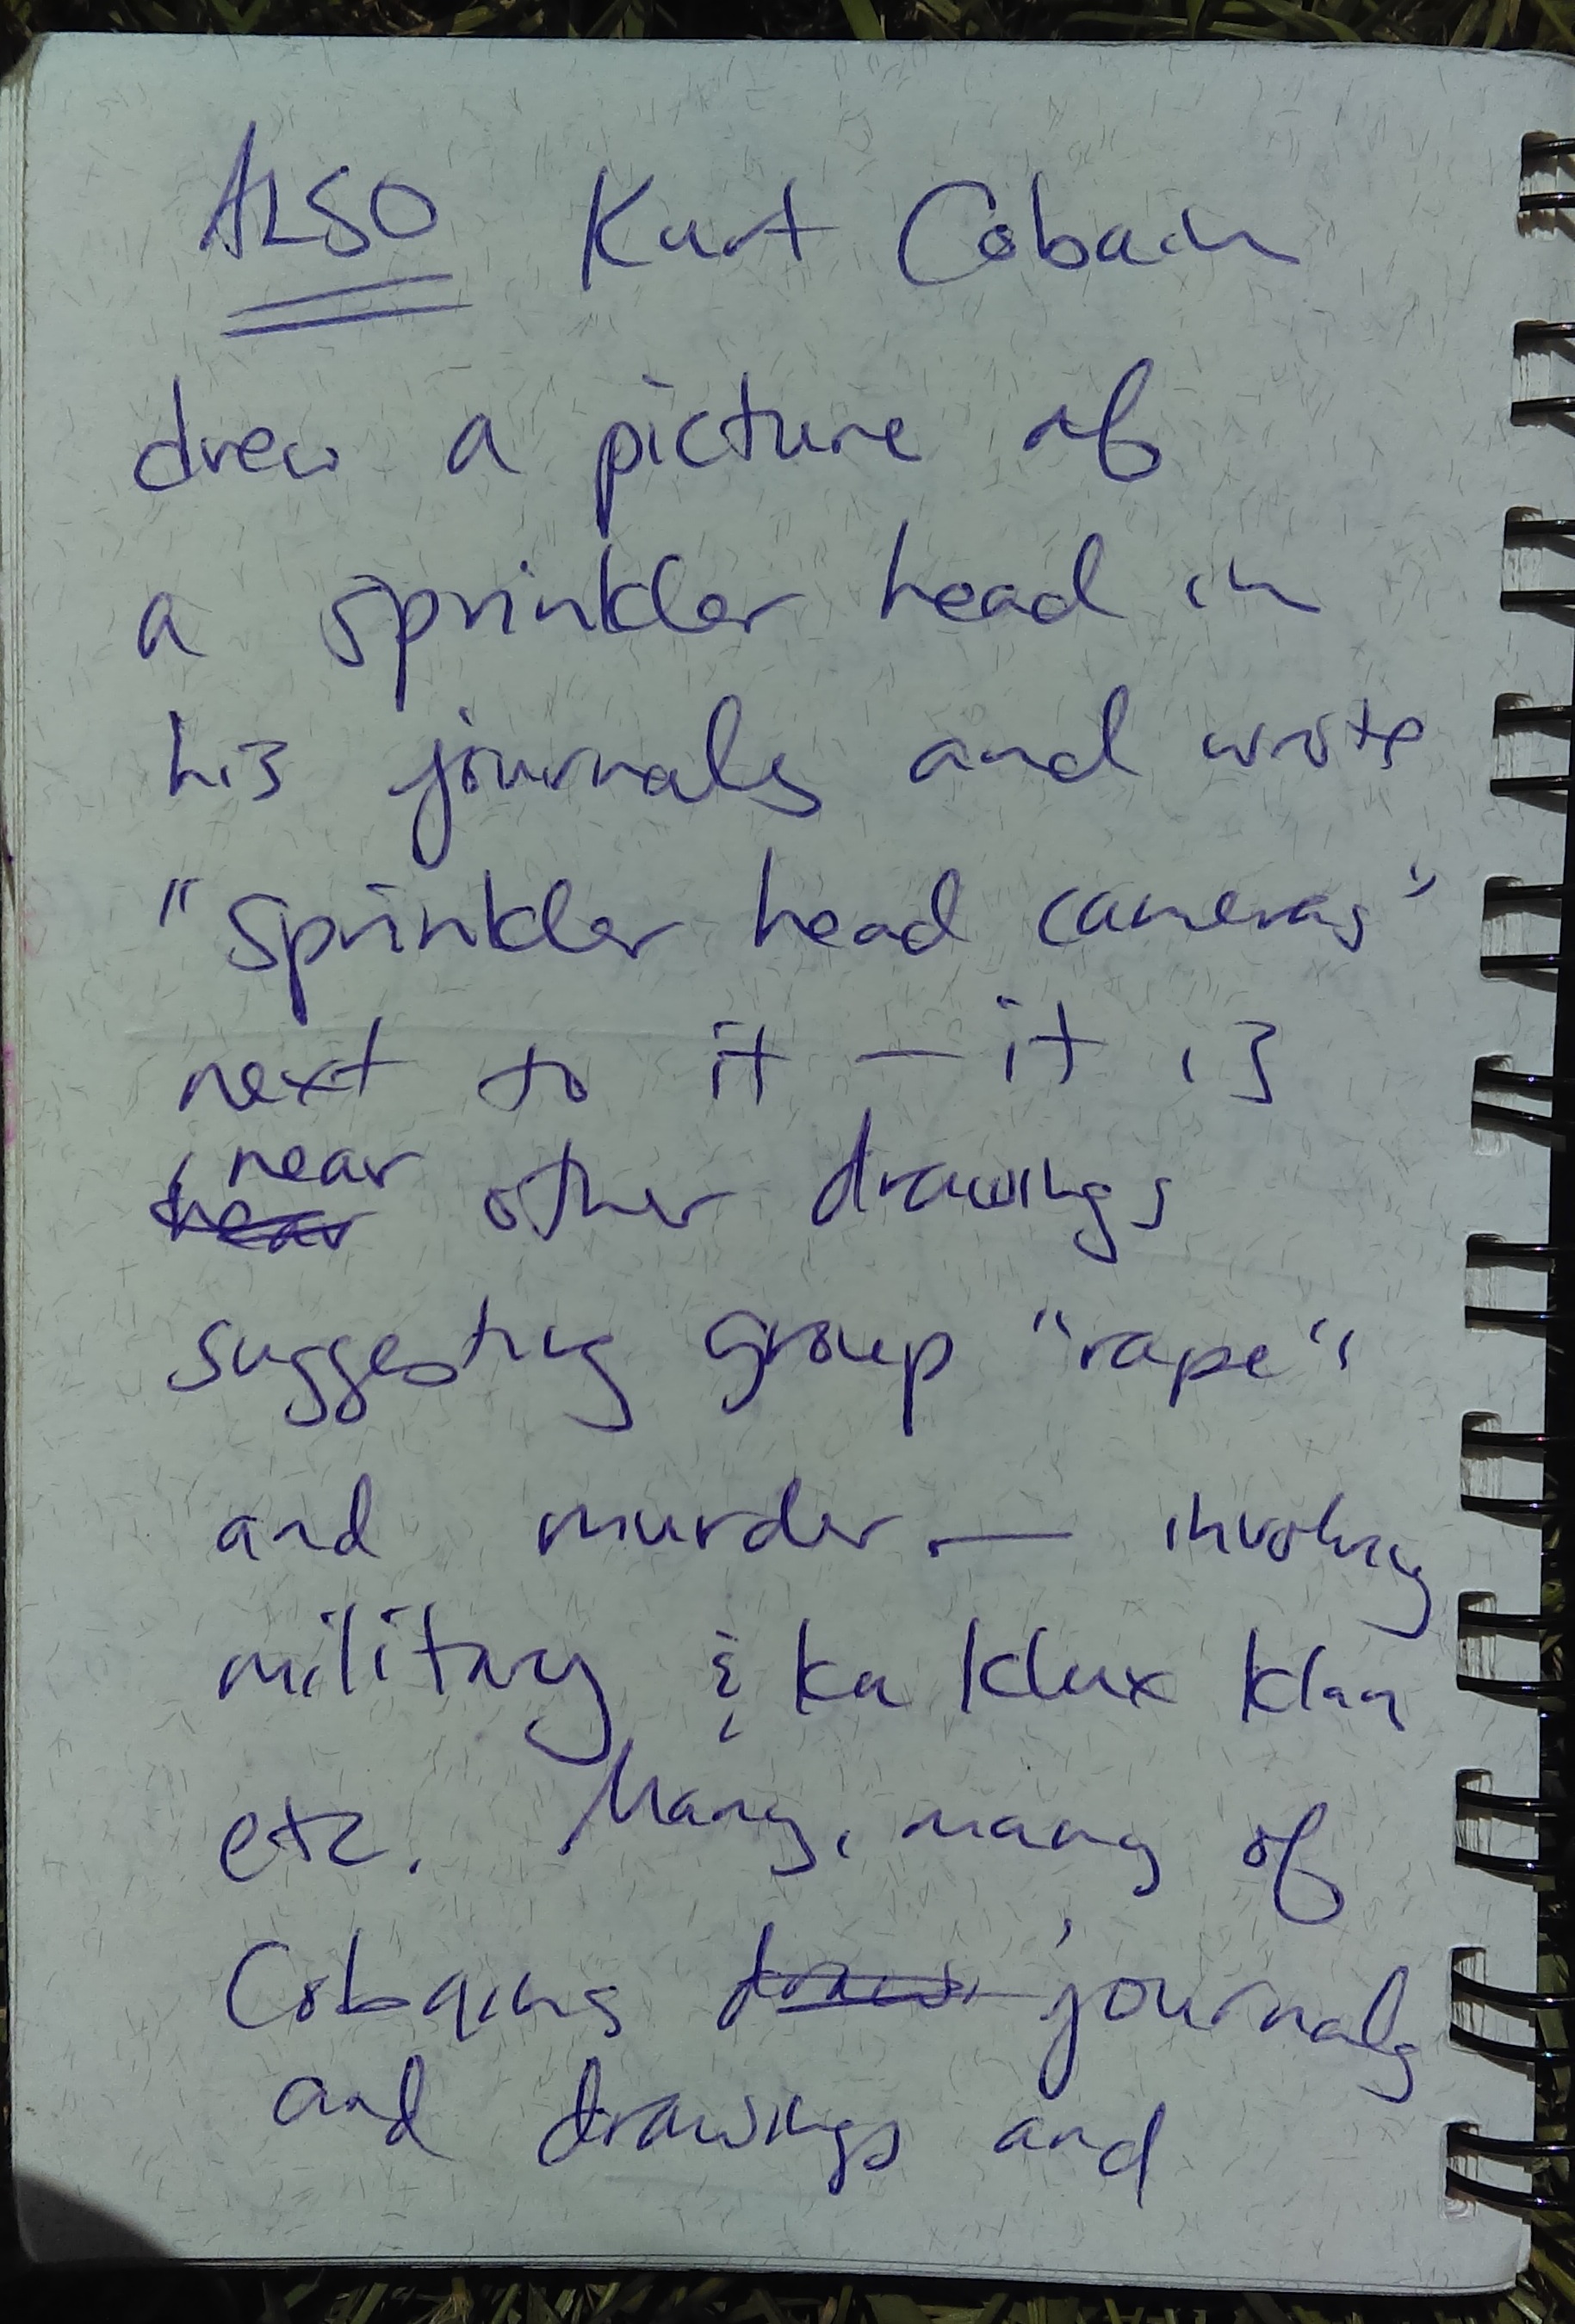 ALSO Kurt Cobain
drew a picture of
a sprinkler head in
his journals and wrote
"sprinkler head cameras"
next to it — it is
near
near other drawings
suggesting group "rape"
and murder — involving
military & ku klux klan
etc. Many, many of
Cobains journals
and drawings and